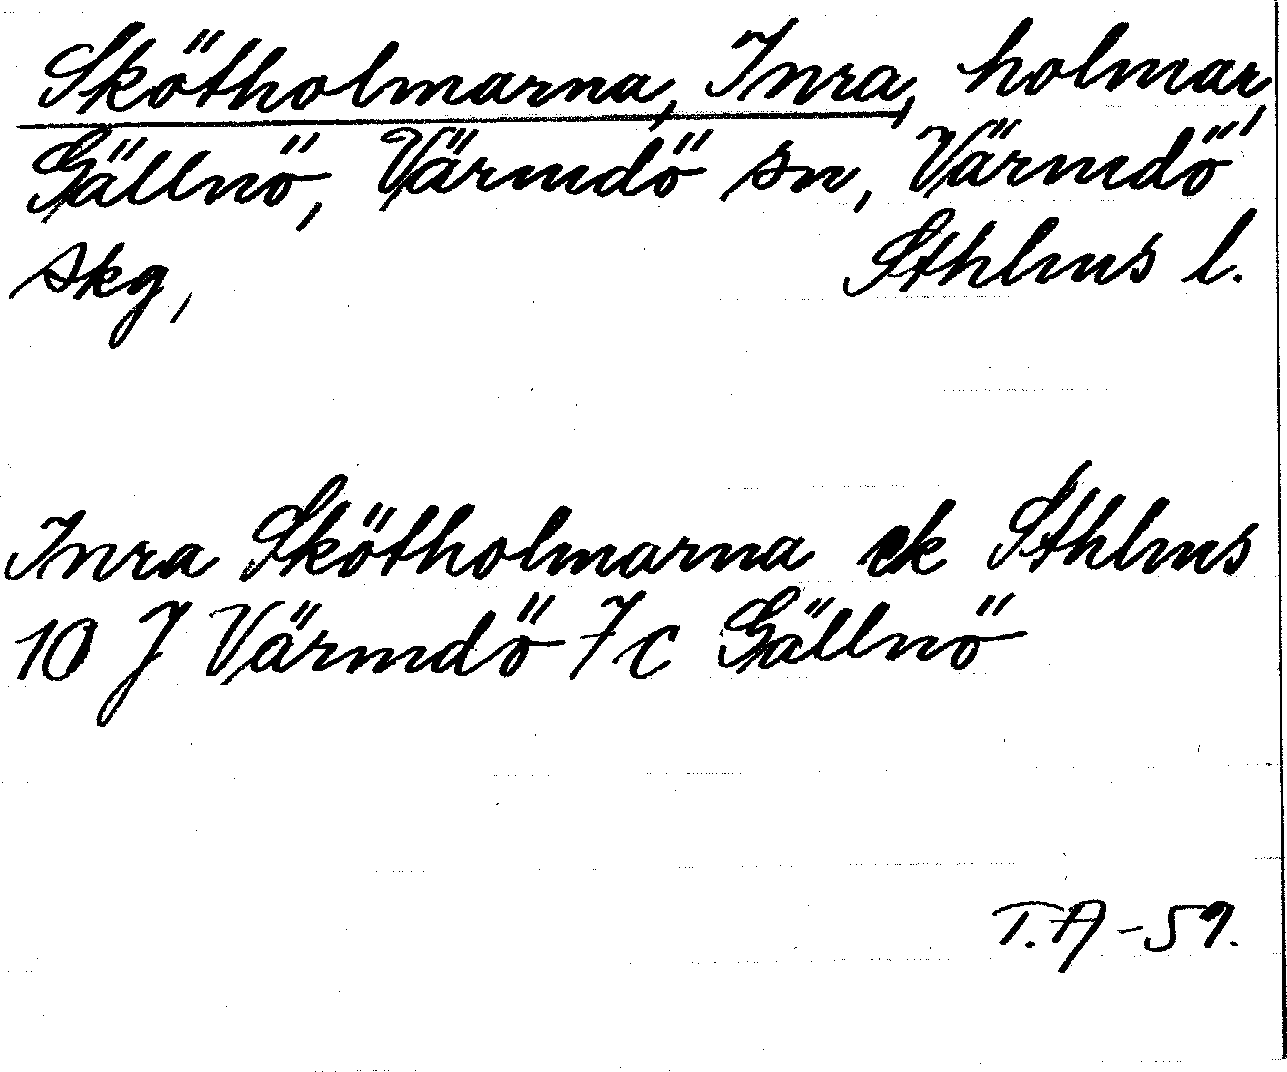 Skötholmarna, Inra, holmar,
Gällnö, Värmdö sn, Värmdö
skg, Sthlms l.
Inra Skötholmarna ek Sthlms
10 J Värmdö 7c Gällnö
T.A -59.